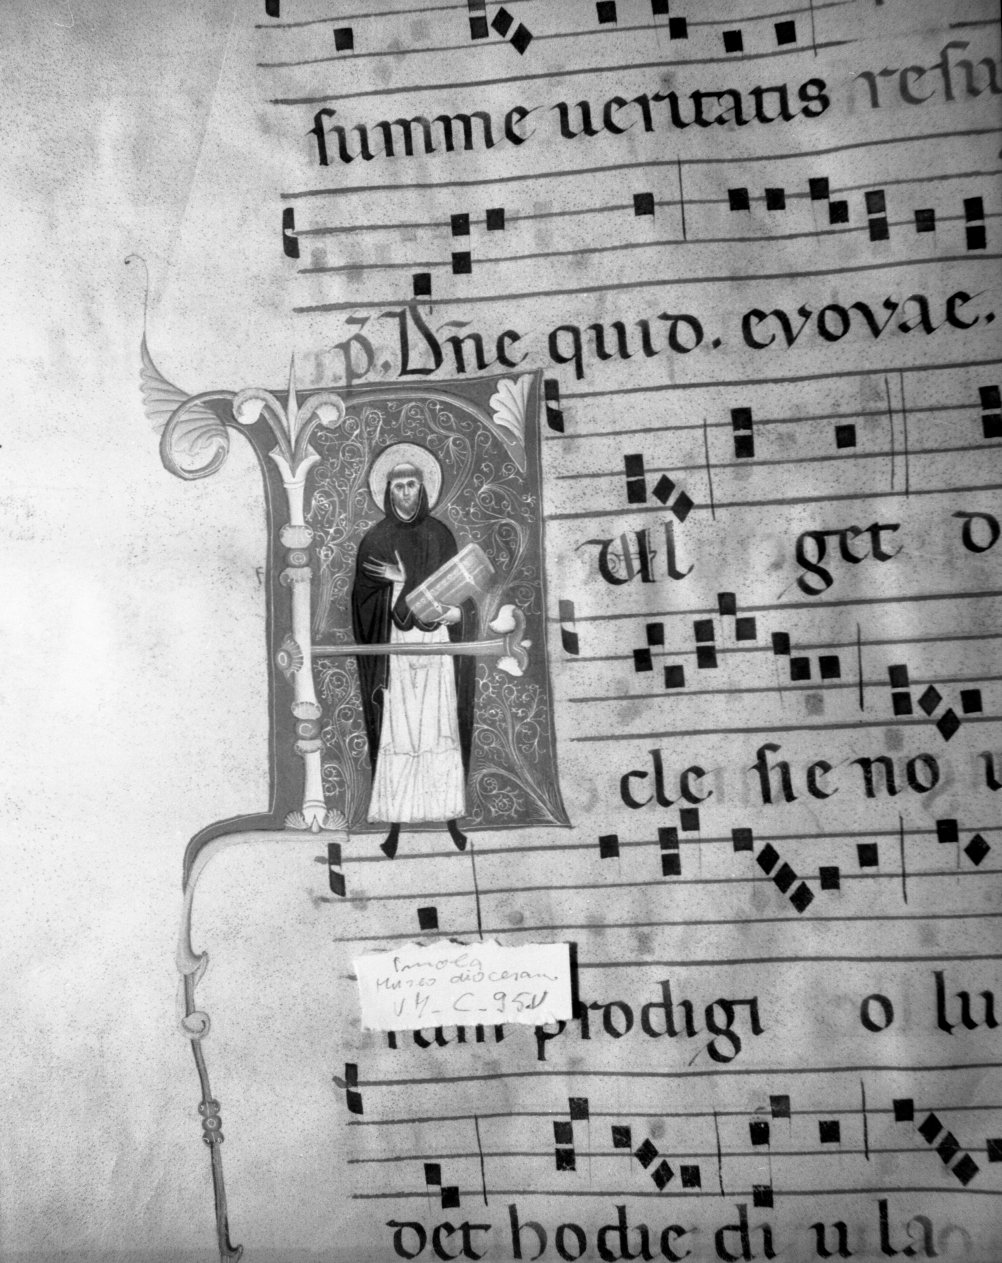 summe ueritatis resu
p̄. Dñe quid. evovae.
F ul get d
cle sie no u
Imola
Museo diocesano
VII - C. 95v
ram prodigi o lu
det hodie di u la